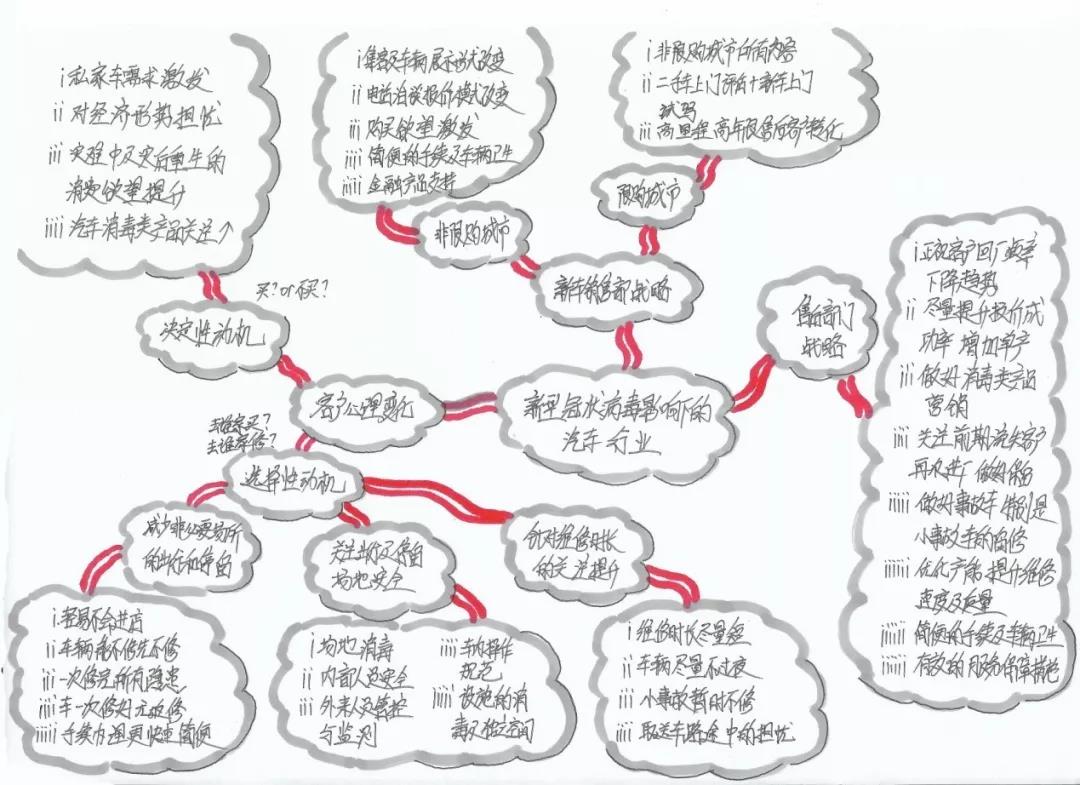 i 私家车需求激发
ii 对经济形势担忧
iii 灾难中及灾后重生的
消费欲望提升
iiii 汽车消毒类产品关注↑
买? or 不买?
决定性动机
i 集客及车辆展示模式改变
ii 电话洽谈报价模式改变
iii 购买欲望激发
iiii 简便的手续及车辆卫生
iiiii 金融产品支持
非限购城市
i 非限购城市所有内容
ii 二手车上门评估+新车上门
试驾
iii 高里程 高年限售后客户转化
限购城市
新车销售部战略
售后部门
战略
i 正视客户回厂频率
下降趋势
ii 尽量提升报价成
功率 增加单产
iii 做好消毒类产品
营销
iiii 关注前期流失客户
再次进厂 做好保留
iiiii 做好事故车 特别是
小事故车的留修
iiiiii 优化产能 提升维修
速度及质量
简便的手续及车辆卫生
有效的服务保障措施
客户心理变化
新型冠状病毒影响下的
汽车行业
去谁家买?
去谁家修?
选择性动机
减少非必要场所
的出行和停留
关注出行及停留
场地安全
针对维修时长
的关注提升
i 轻易不会进店
ii 车辆能不修先不修
iii 一次修完所有隐患
iiii 车一次修好 无返修
iiiii 手续办理更快更简便
i 场地消毒
ii 内部人员安全
iii 外来人员管控
与监测
iiii 车辆操作
规范
iiiii 设施的消
毒及独立空间
i 维修时长尽量短
ii 车辆尽量不过夜
iii 小事故暂时不修
iiii 取送车路途中的担忧